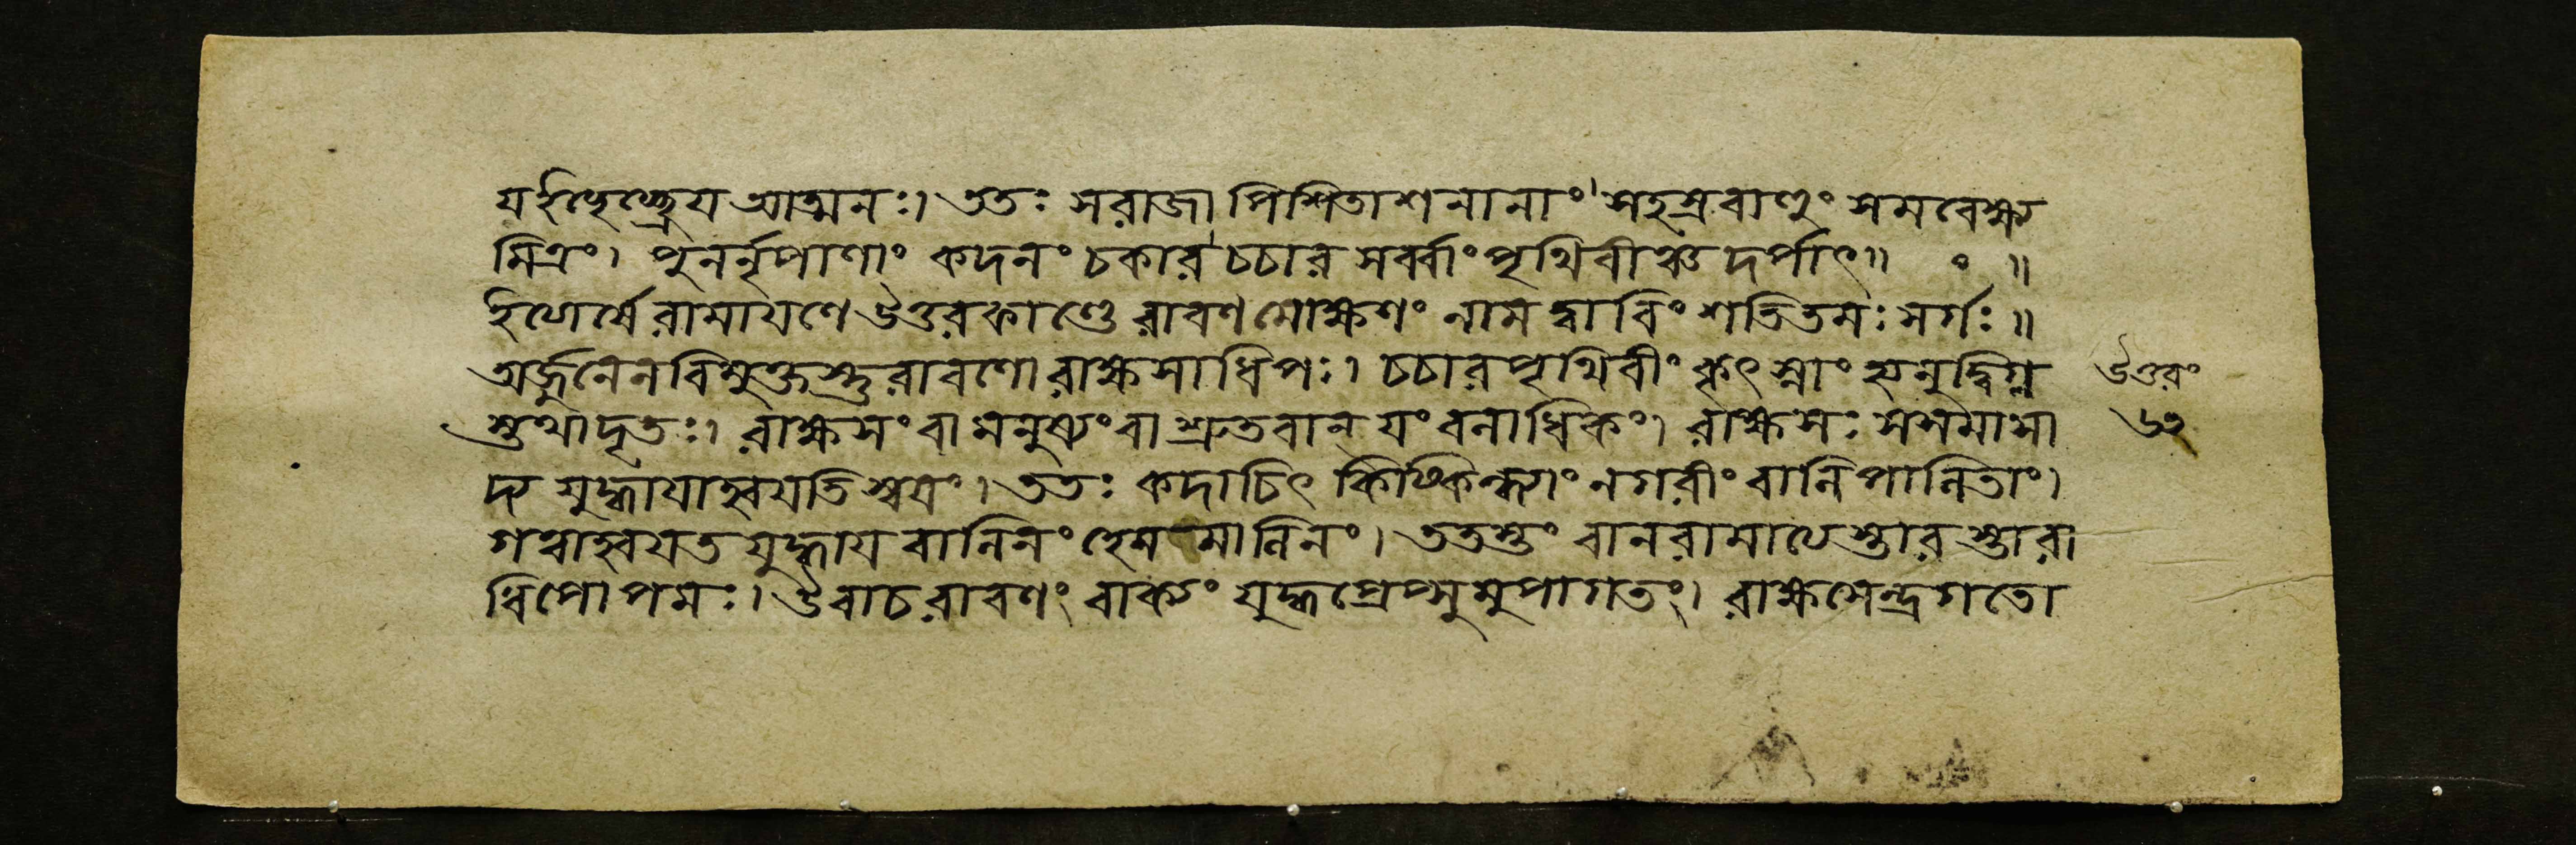 য ইচ্ছেচ্ছ্রেয আত্মনঃ। ততঃ স রাজা পিশিতাশনানাং সহস্রবাহুং সমবেক্ষ্য
মিত্রং। পুনর্নৃপাণাং কদনং চকার চচার সর্ব্বাং পৃথিবীঞ্চ দর্পাৎ॥ ॰ ॥
ইত্যার্ষে রামাযণে উত্তরকাণ্ডে রাবণমোক্ষণং নাম দ্বাবিংশতিতমঃ সর্গঃ॥
অর্জ্জুনেন বিমুক্তস্তু রাবণো রাক্ষসাধিপঃ। চচার পৃথিবীং কৃৎস্নাং হ্যনুদ্বিগ্ন
স্তথাদৃতঃ। রাক্ষসং বা মনুষ্যং বা শ্রুতবান্ যং বলাধিকং। রাক্ষসঃ স সমাসা
দ্য যুদ্ধাযাহ্বযতি স্বযং। ততঃ কদাচিৎ কিষ্কিন্ধ্যাং নগরীং বালিপালিতাং।
গত্বাহ্বযত যুদ্ধায বালিনং হেমমালিনং। ততস্তং বানরামাত্যস্তারস্তারা
ধিপোপমঃ। উবাচ রাবণং বাক্যং যুদ্ধপ্রেপ্সুমুপাগতং। রাক্ষসেন্দ্র গতো
উত্তরং
৬২